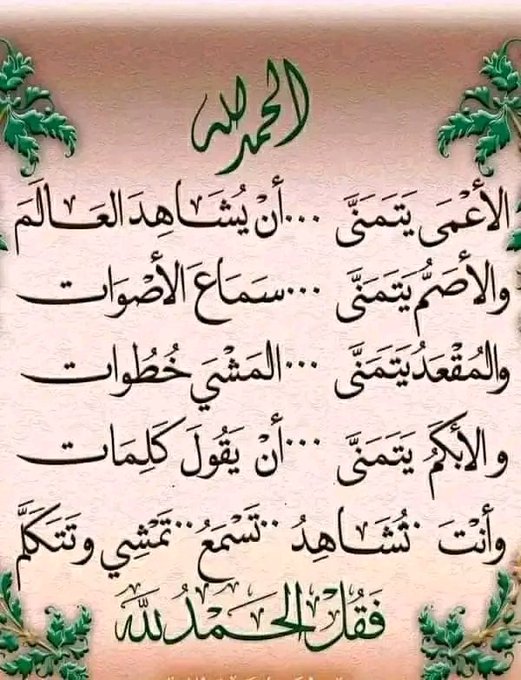 الحمد لله
الأَعْمَى يَتَمَنَّى ...أَنْ يُشَاهِدَ العَالَمَ
والأَصَمُّ يَتَمَنَّى ...سَمَاعَ الأَصْوَات
والمُقْعَدُ يَتَمَنَّى ...المَشْيَ خُطُوَات
والأَبْكَمُ يَتَمَنَّى ...أَنْ يَقُولَ كَلِمَات
وأَنْتَ .تُشَاهِدُ ..تَسْمَعُ ..تَمْشِي وتَتَكَلَّمُ
فَقُلْ الحَمْدُ لِلَّه